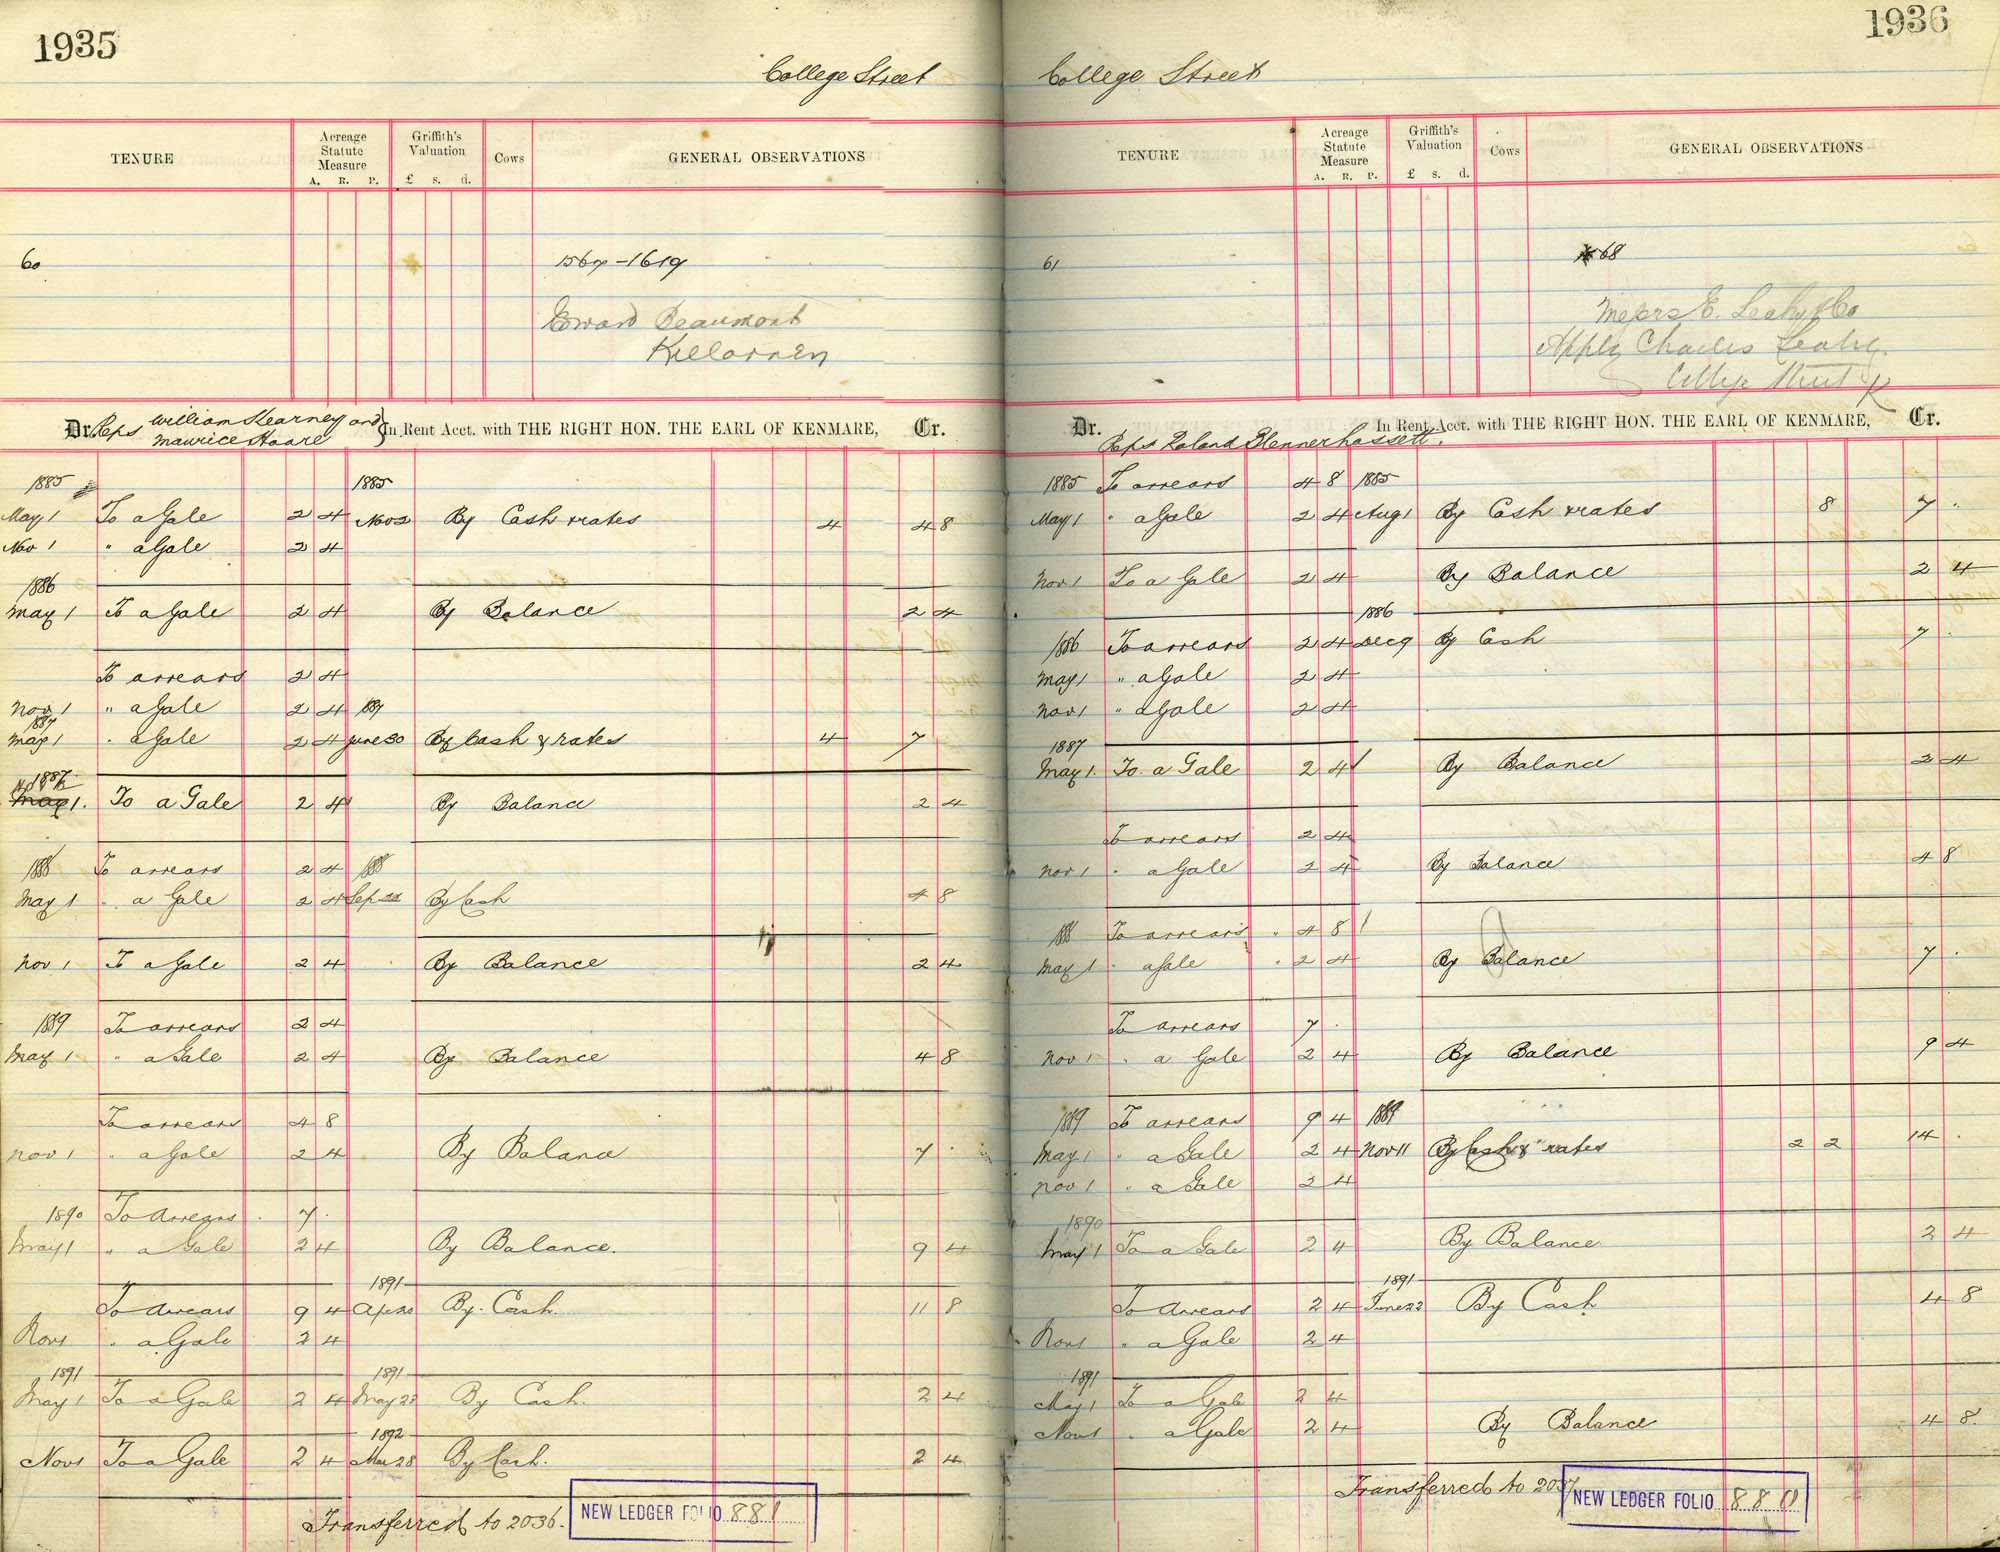 1935
College Street
TENURE
Acreage Statute Measure
A. R. P.
Griffith's Valuation
£ s. d.
Cows
GENERAL OBSERVATIONS
60
1567-1619
Edward Beaumont
Killarney
Dr. Reps William Kearney and Maurice Hoare } In Rent Acct. with THE RIGHT HON. THE EARL OF KENMARE, Cr.
1885 1885
May 1 To a Gale 2 4 Nov 2 By Cash & rates 4 4 8
Nov 1 " a Gale 2 4
1886
May 1 To a Gale 2 4 By Balance 2 4
To arrears 2 4
Nov 1 " a Gale 2 4 1887
1887
May 1 " a Gale 2 4 June 30 By Cash & rates 4 7
1887
May 1. To a Gale 2 4 By Balance 2 4
1888 To arrears 2 4 1888
May 1 " a Gale 2 4 Sep 22 By Cash 4 8
Nov 1 To a Gale 2 4 By Balance 2 4
1889 To arrears 2 4
May 1 " a Gale 2 4 By Balance 4 8
To arrears 4 8
Nov 1 " a Gale 2 4 By Balance 7 .
1890 To Arrears . 7 .
May 1 " a Gale 2 4 By Balance. 9 4
1891
To Arrears 9 4 Apr 20 By Cash. 11 8
Nov 1 " a Gale 2 4
1891 1891
May 1 To a Gale 2 4 May 23 By Cash. 2 4
1892
Nov 1 To a Gale 2 4 Mar 28 By Cash. 2 4
Transferred to 2036.
NEW LEDGER FOLIO 881
1936
College Street
TENURE
Acreage Statute Measure
A. R. P.
Griffith's Valuation
£ s. d.
Cows
GENERAL OBSERVATIONS
61
68
Messrs E. Leahy & Co
Apply Charles Leahy.
College Street K
Dr. Reps Roland Blennerhassett. In Rent Acct. with THE RIGHT HON. THE EARL OF KENMARE, Cr.
1885 To arrears 4 8 1885
May 1 " a Gale 2 4 Aug 1 By Cash & rates 8 7 .
Nov 1 To a Gale 2 4 By Balance 2 4
1886
1886 To arrears 2 4 Dec 9 By Cash 7 .
May 1 " a Gale 2 4
Nov 1 " a Gale 2 4
1887
May 1. To. a Gale 2 4 By Balance 2 4
To arrears 2 4
Nov 1 " a Gale 2 4 By Balance 4 8
1888 To arrears 4 8
May 1 " a Gale 2 4 By Balance 7 .
To arrears 7 .
Nov 1 " a Gale 2 4 By Balance 9 4
1889 To arrears 9 4 1889
May 1 " a Gale 2 4 Nov 11 By Cash & rates 2 2 14 .
Nov 1 " a Gale 2 4
1890
May 1 To a Gale 2 4 By Balance 2 4
1891
To Arrears 2 4 June 22 By Cash 4 8
Nov 1 " a Gale 2 4
1891
May 1 To a Gale 2 4
Nov 1 " a Gale 2 4 By Balance 4 8.
Transferred to 2037
NEW LEDGER FOLIO 880